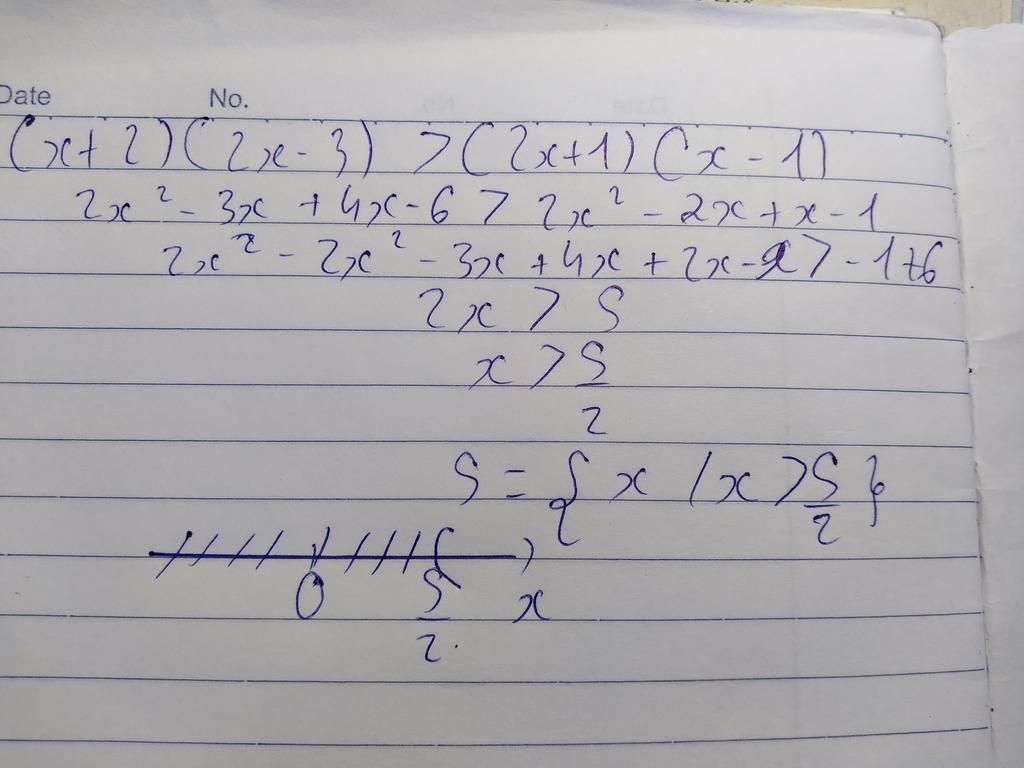 Date No.
(x+2)(2x-3) >(2x+1)(x-1)
2x² - 3x + 4x - 6 > 2x² - 2x + x - 1
2x² - 2x² - 3x + 4x + 2x - x > - 1 + 6
2x > 5
x > 5/2
S = { x / x > 5/2 }
0 5/2 x